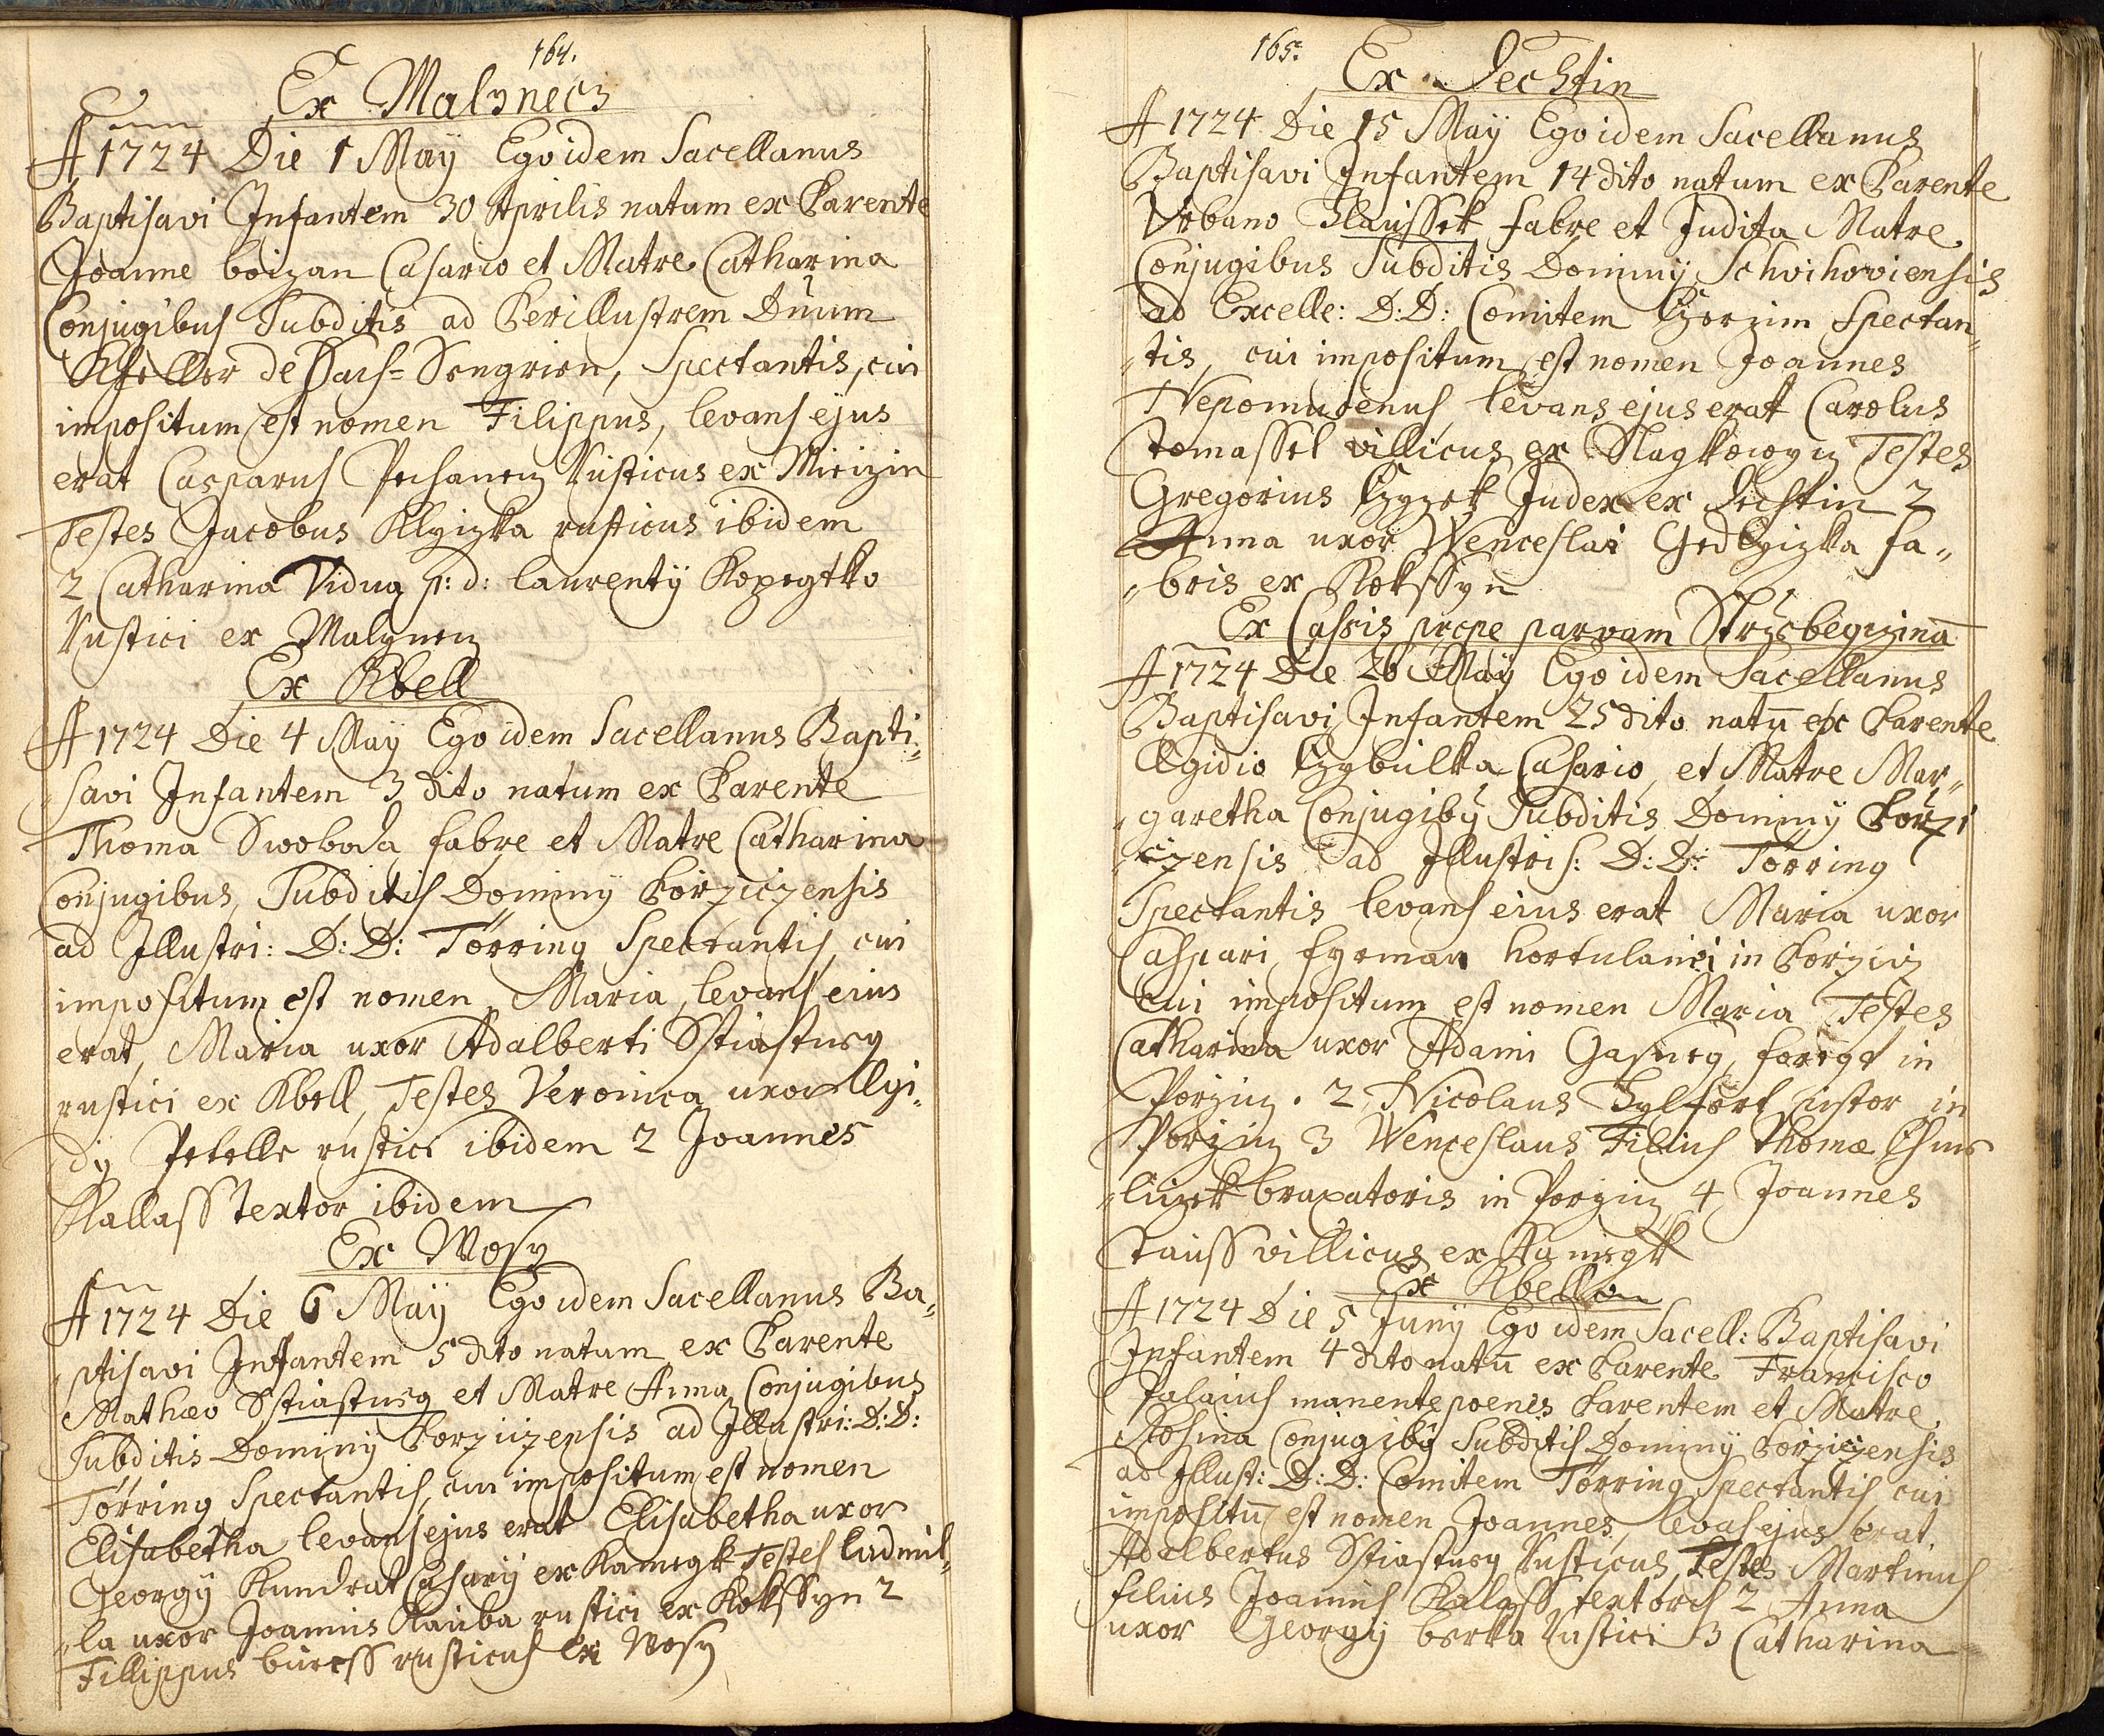 164.
Ex Malynecz
A 1724 Die 1 Maÿ Ego idem Sacellanus
Baptisavi Infantem 30 Aprilis natam ex Parente
Joanne boizan Casario et Matre Catharina
Conjugibus Subditis ad Perillustrem Dnum
de Sach= Sengrien, Spectantis, cui
impositum est nomen Filippus, levans ejus
erat Casparus Pechanecz Rusticus ex Mieczin
Testes Jacobus Klyizka rusticus ibidem
2 Catharina Vidua p: d: laurentÿ Kopegtko
Rustici ex Malynecz
Ex Kbell
A 1724 Die 4 Maÿ Ego idem Sacellanus Bapti„
savi Infantem 3 dito natum ex Parente
Thoma Swoboda fabre et Matre Catharina
Conjugibus, Subditis Dominÿ Porziczensis
ad Illustri: D: D: Törring Spectantis, cui
impositum est nomen Maria, levans eius
erat, Maria uxor Adalberti Sstiastneg
rustici ex Kbell, Testes Veronica uxor Ægi„
dÿ Petelle rustici ibidem 2 Joannes
Kallass textor ibidem
Ex Wosy
A 1724 Die 6 Maÿ Ego idem Sacellanus Ba„
„ptisavi Infantem 5 dito natam ex Parente
Mathæo Sstiastneg et Matre Anna Conjugibus
Subditis Dominÿ Porziczensis ad Illustri: D: D:
Törring Spectantis, cui impositum est nomen
Elisabetha levans ejus erat Elisabetha uxor
Georgÿ Kundrat Casarÿ ex Kamegk Testes ludmil„
„la uxor Joannis Kauba rustici ex Kokssyn 2
Fillippus buress rusticus ex Wosy
165.
Ex Dechtin
A 1724 Die 15 Maÿ Ego idem Sacellanus
Baptisavi Infantem 14 dito natum ex Parente
Urbano Hlaussek fabre et Judita Matre
Conjugibus Subditis Dominÿ Schvihoviensis
ad Excelle: D: D: Comitem Czernin Spectan„
„tis, cui impositum est nomen Joannes
Nepomucenus, levans ejus erat Carolus
Tomassek villicus ex Testes
Gregorius Czyzek Judex ex Dechtin 2
Anna uxor Wenceslai Gedlyizka fa„
„bris ex Kokssyn
Ex Cassis prope parvam Strzebeyczinā
A 1724 Die 26 Maÿ Ego idem Sacellanus
Baptisavi Infantem 25 dito natū ex Parente
Ægidio Czybulka Casario, et Matre Mar„
„garetha Conjugibȳ Subditis Dominÿ Porzi
„czensis ad Illustris: D: D: Törring
Spectantis levans eius erat Maria uxor
Caspari fyrman hortulani in Porzicz
cui impositum est nomen Maria Testes
Catharina uxor Adami Gasneg, in
Porzicz. 2 Nicolaus pistor in
Porzicz 3 Wenceslaus Filius Thomæ Chme
„liczek braxatoris in Porzicz 4 Joannes
Tauss villicus ex Kamegk
Ex Kbell
A 1724 Die 5 Junÿ Ego idem Sacell: Baptisavi
Infantem 4 dito natū ex Parente Francisco
manente poenes Parentem et Matre
Rosina Conjugibȳ Subditis Dominÿ Porziczensis
ad Illust: D: D: Comitem Törring Spectantis, cui
impositū est nomen Joannes, levās ejus erat
Adalbertus Sstiastneg Rusticus, Testes Martinus
filius Joannis Kalass textoris 2 Anna
uxor Georgÿ berka Rustici 3 Catharina